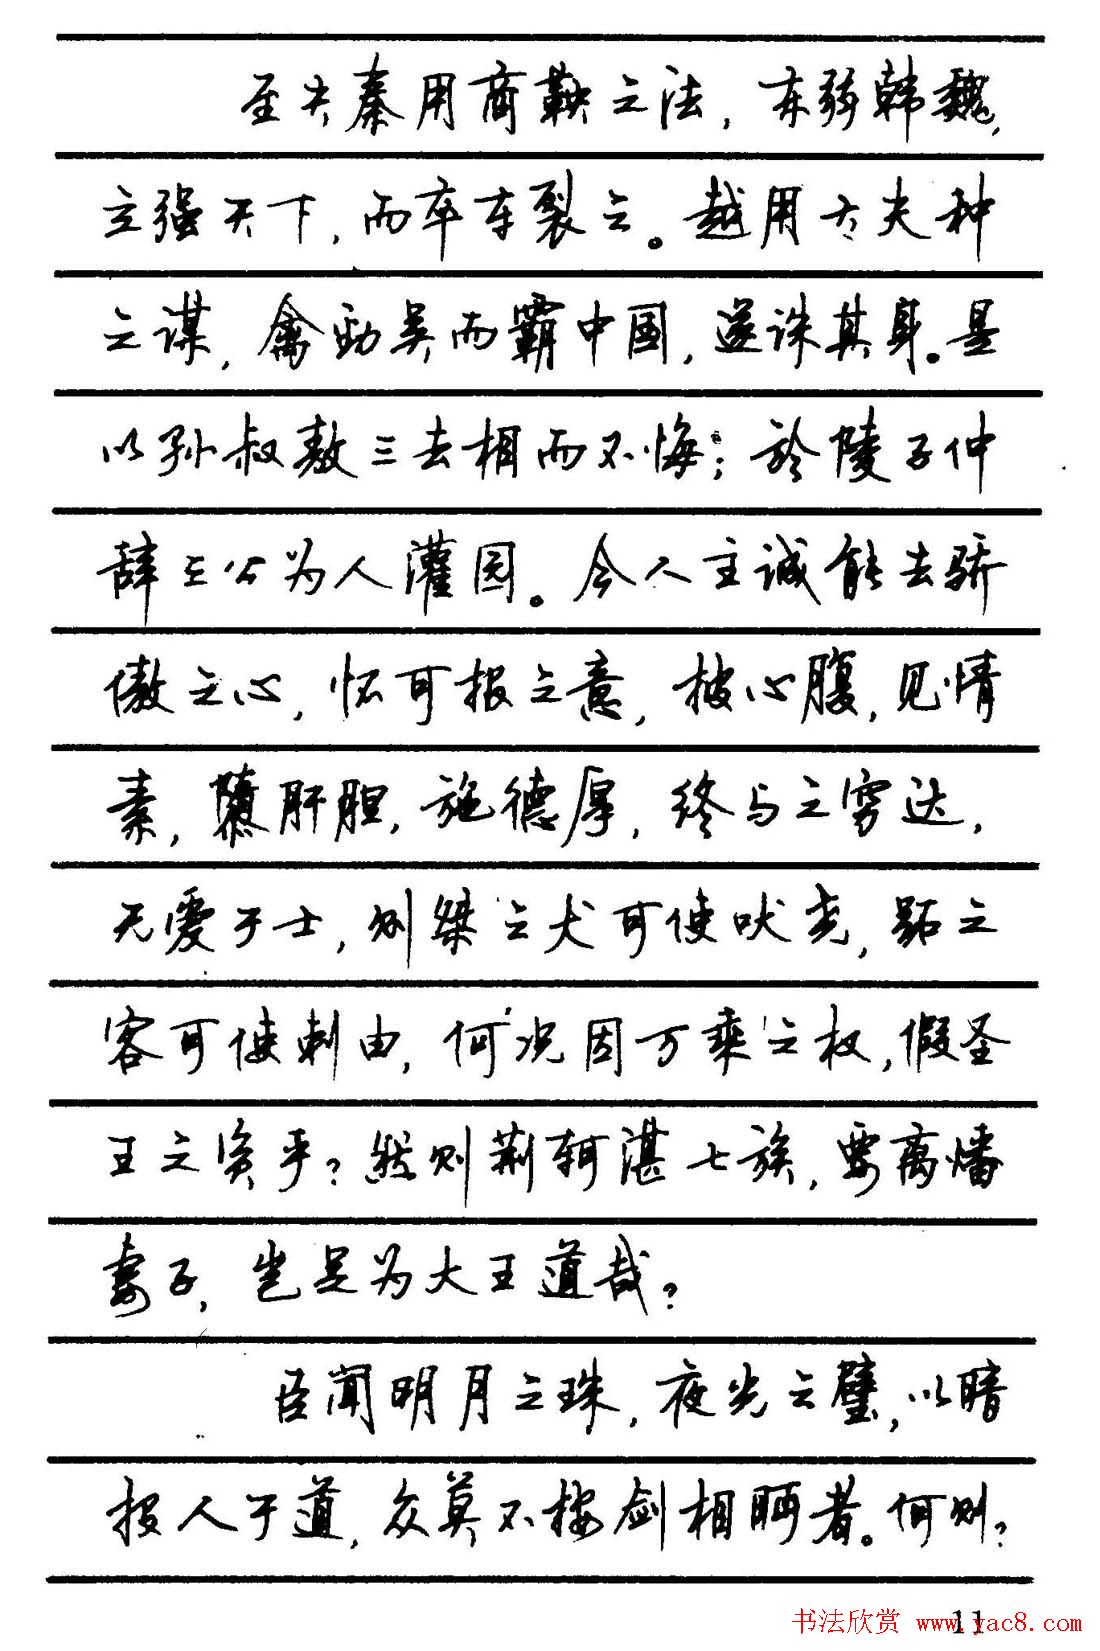 至夫秦用商鞅之法，东弱韩魏，
立强天下，而卒车裂之。越用大夫种
之谋，禽劲吴而霸中国，遂诛其身。是
以孙叔敖三去相而不悔；於陵子仲
辞三公为人灌园。今人主诚能去骄
傲之心，怀可报之意，披心腹，见情
素，隳肝胆，施德厚，终与之穷达，
无爱于士，则桀之犬可使吠尧，跖之
客可使刺由，何况因万乘之权，假圣
王之资乎？然则荆轲湛七族，要离燔
妻子，岂足为大王道哉？
臣闻明月之珠，夜光之璧，以暗
投人于道，众莫不按剑相眄者。何则？
书法欣赏 www.yac8.com
11